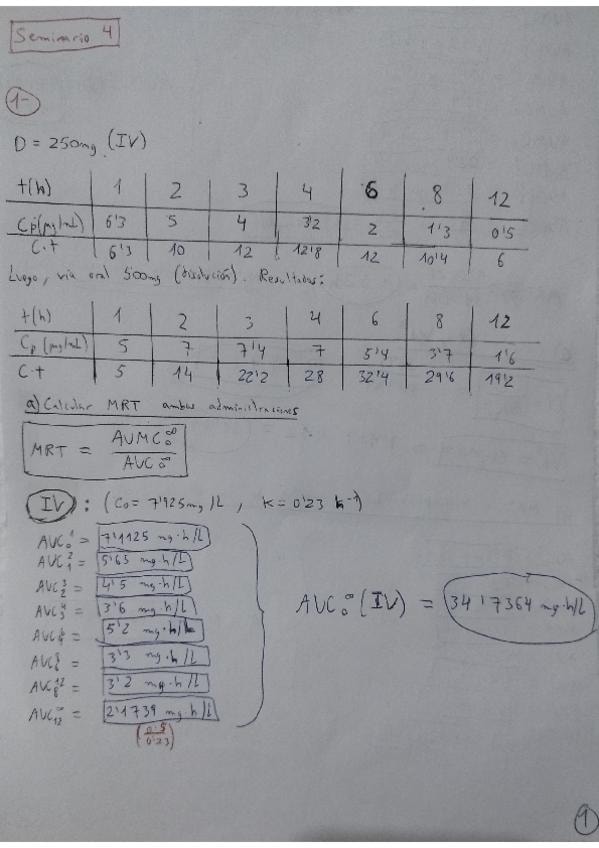 Seminario 4
1-
D = 250mg (IV)
t(h) 1 2 3 4 6 8 12
Cp(mg/mL) 6'3 5 4 3'2 2 1'3 0'5
C·t 6'3 10 12 12'8 12 10'4 6
Luego, vía oral 500mg (disolución). Resultados:
t(h) 1 2 3 4 6 8 12
Cp (mg/mL) 5 7 7'4 7 5'4 3'7 1'6
C·t 5 14 22'2 28 32'4 29'6 19'2
a) Calcular MRT ambas administraciones
MRT = AUMC₀^∞ / AUC₀^∞
IV : (C₀ = 7'925mg/L , K = 0'23 h⁻¹)
AUC₀¹ = 7'1125 mg·h/L
AUC₁² = 5'65 mg·h/L
AUC₂³ = 4'5 mg·h/L
AUC₃⁴ = 3'6 mg·h/L
AUC₄⁶ = 5'2 mg·h/L
AUC₆⁸ = 3'3 mg·h/L
AUC₈¹² = 3'2 mg·h/L
AUC₁₂^∞ = 2'1739 mg·h/L
(0'5/0'23)
AUC₀^∞ (IV) = 34'7364 mg·h/L
1